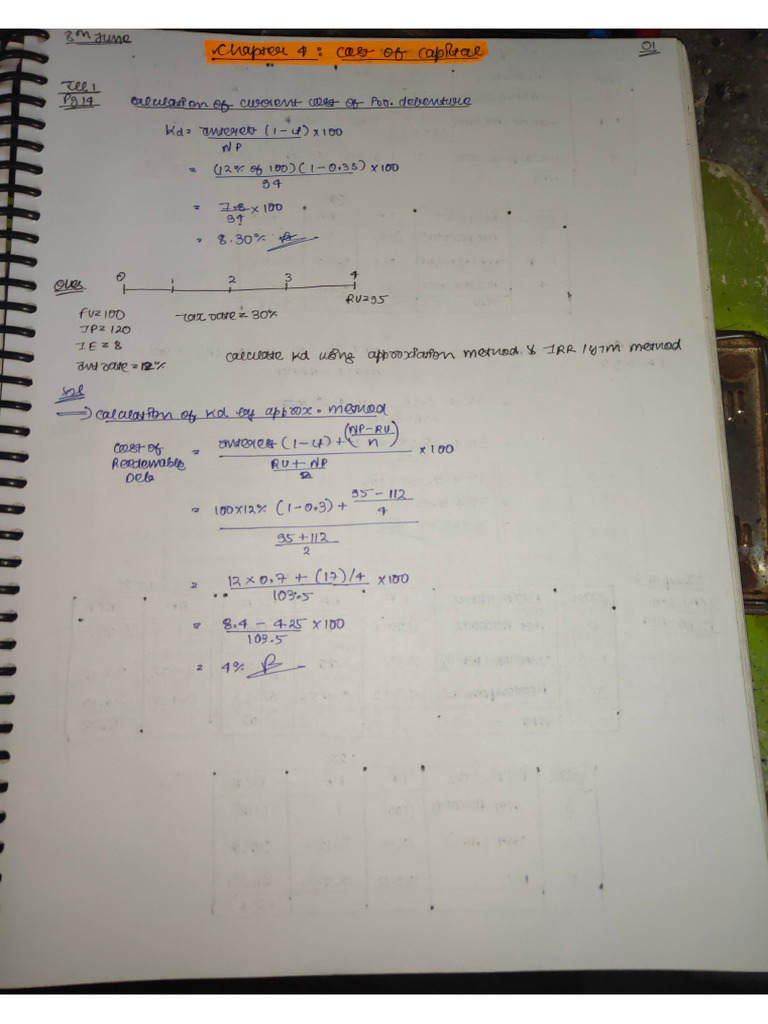 8th June
Chapter 4 : Cost of Capital
01
Ill 1
Pg 14
Calculation of current cost of Poo. debenture
Kd = interest (1-t) × 100
NP
= (12% of 100) (1-0.35) × 100
94
= 7.8 × 100
94
= 8.30%
Ques
0 1 2 3 4
RV=95
FV=100
tax rate = 30%
IP=120
IE=8
int rate = 12%
Calculate Kd using approxiation method & IRR / YTM method
Sol
⇒ Calculation of Kd by approx. method
Cost of Reedemable Deb = interest (1-t) + (NP-RV / n) × 100
RV + NP
2
= 100×12% (1-0.3) + 95-112
4
95+112
2
= 12 × 0.7 + (17)/4 × 100
103.5
= 8.4 - 4.25 × 100
103.5
= 4%